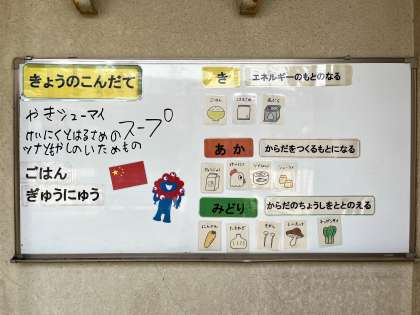 きょうのこんだて
やきシューマイ
けいにくとはるさめのスープ
ツナともやしのいためもの
ごはん
ぎゅうにゅう
き
エネルギーのもとのなる
ごはん
はるさめ
あか
からだをつくるもとになる
ぎゅうにゅう
けいにく
みどり
からだのちょうしをととのえる
にんじん
たまねぎ
もやし